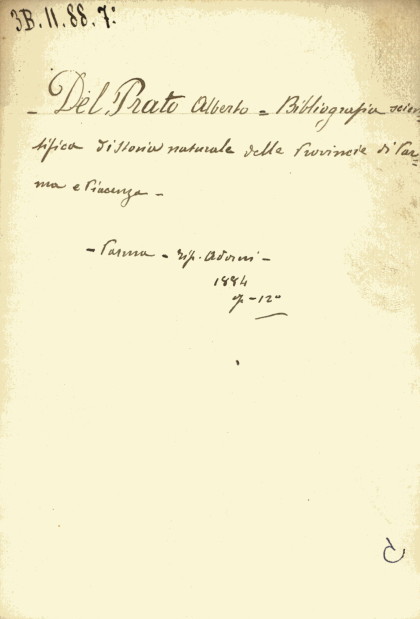 3B.11.88.7:
- Del Prato Alberto = Bibliografia scien=
tifica di Storia naturale delle Provincie di Par=
ma e Piacenza -
- Parma - tip. Adorni -
1884
- 12°